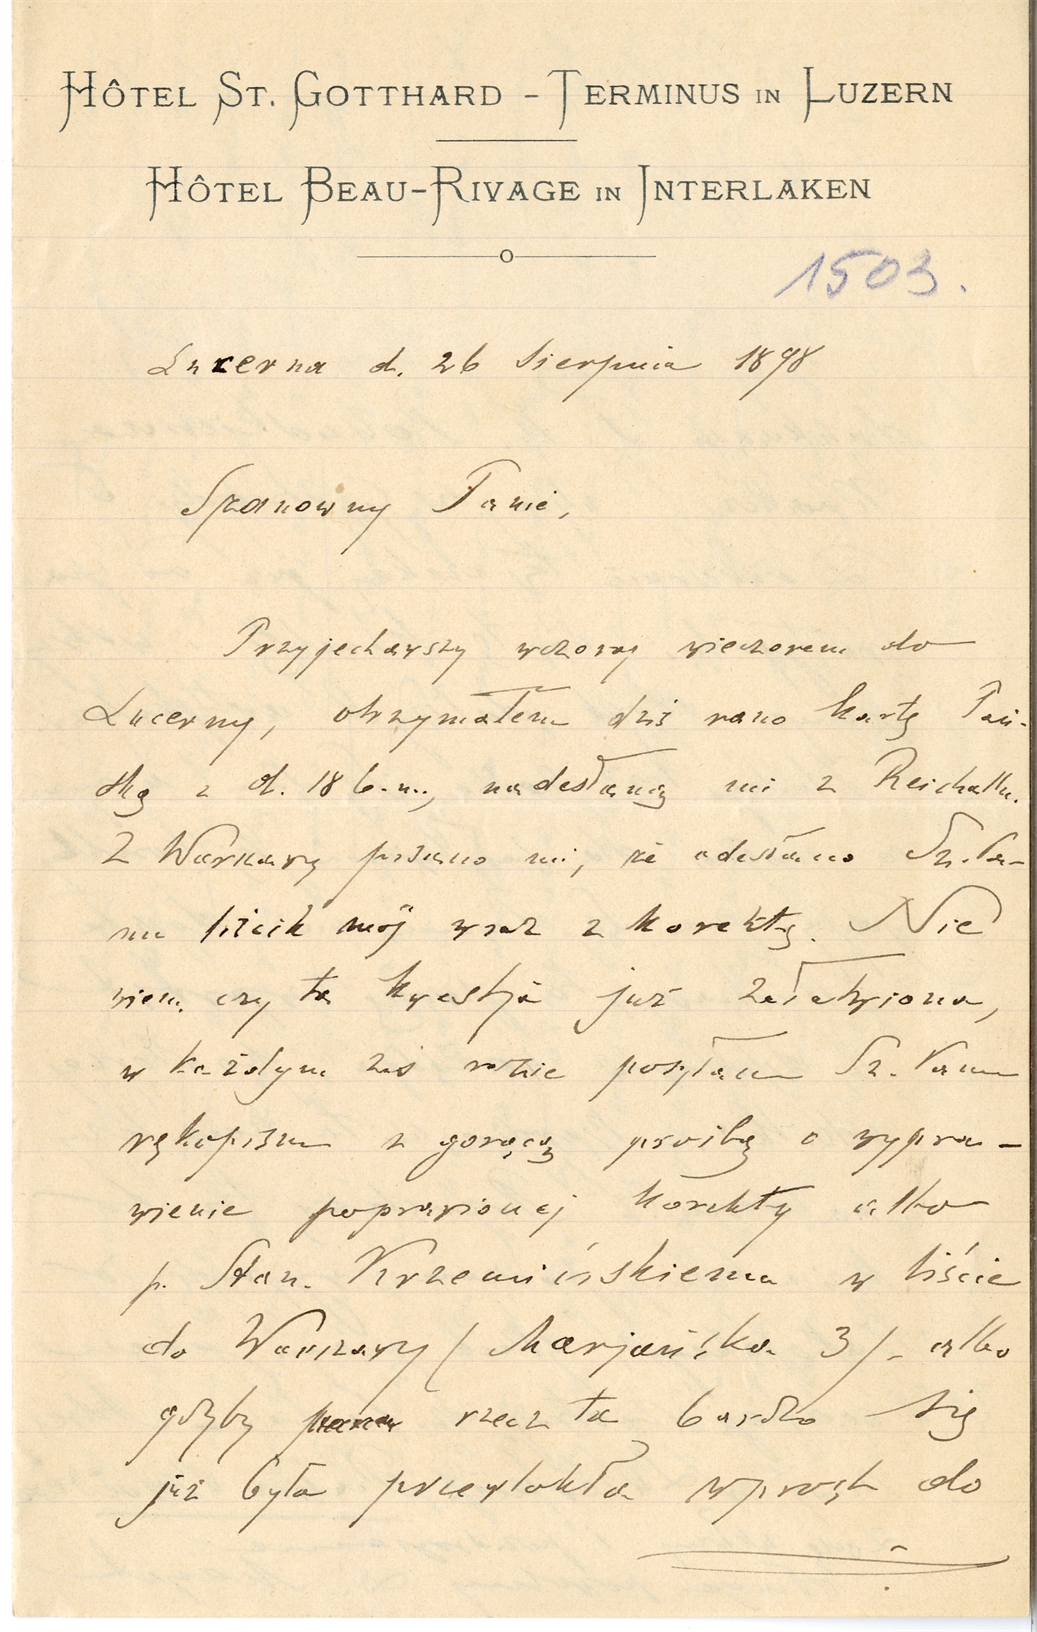 HÔTEL ST. GOTTHARD - TERMINUS IN LUZERN
HÔTEL BEAU-RIVAGE IN INTERLAKEN
1503.
Lucerna d. 26 Sierpnia 1898
Szanowny Panie,
Przyjechawszy wczoraj wieczorem do
Lucerny, otrzymałem dziś rano kartę Pań-
ską z d. 18 b.m., nadesłaną mi z Reichenh.
Z Warszawy pisano mi, że odesłano Sz. Pa-
nu liścik mój wraz z korektą. Nie
wiem, czy ta kwestja już załatwiona,
w każdym zaś razie posyłam Sz. Panu
rękopism z gorącą prośbą o wypra-
wienie poprawionej korekty albo
p. Stan. Krzemińskiemu w liście
do Warszawy (Marjańska 3) - albo
gdyby rzecz ta bardzo się
już była przewlokła wprost do